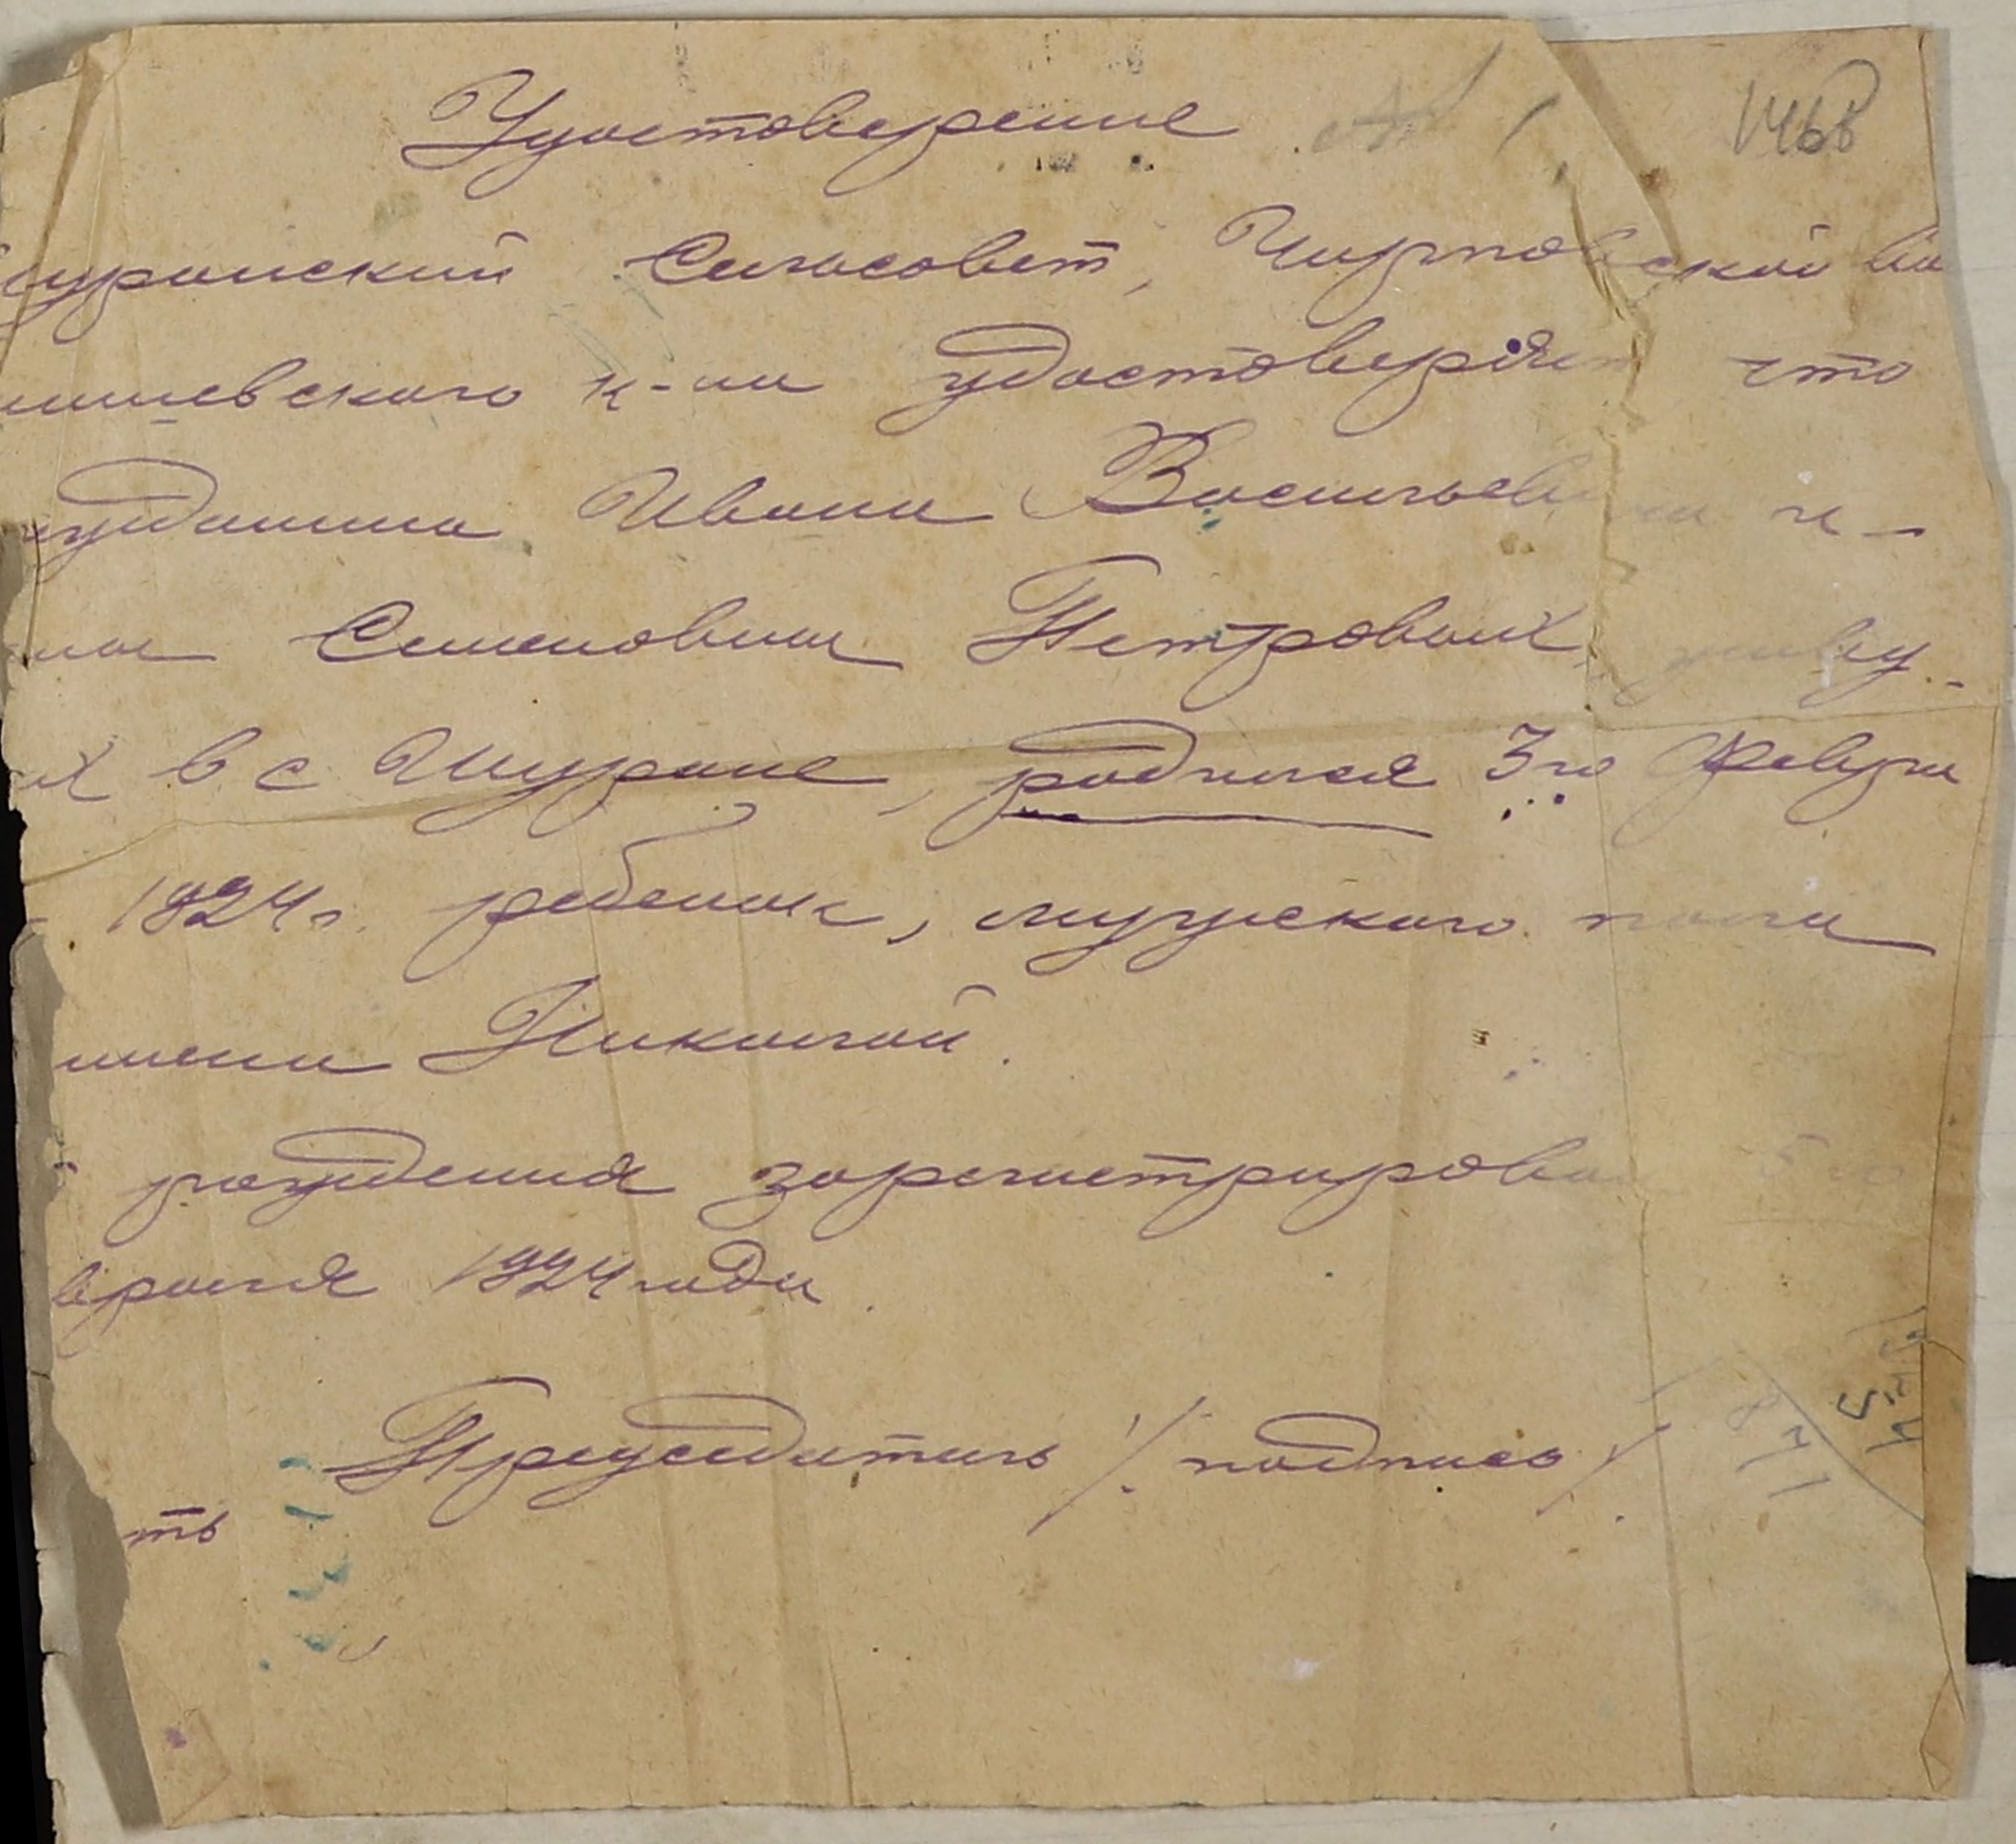 Удостоверение
146б
Шуранский Сельсовет, Чирповской во
мишевского к-на удостоверяет что
гражданина Ивана Васильевича и-
ны Семеновны Петровых, живу-
их в с Шуране, родился 3го Февра
1924г. ребенок, мужского пола
имени Николай.
рождения зарегистрирован 5го
враля 1924 года.
Председатель /подпись/.
ть